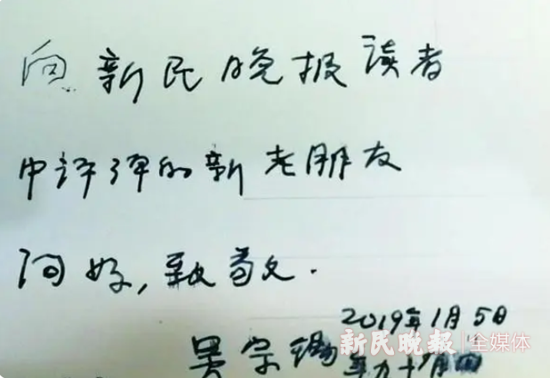 向新民晚报读者
中评弹的新老朋友
问好，致敬意.
吴宗锡
2019年1月5日
新民晚报|全媒体